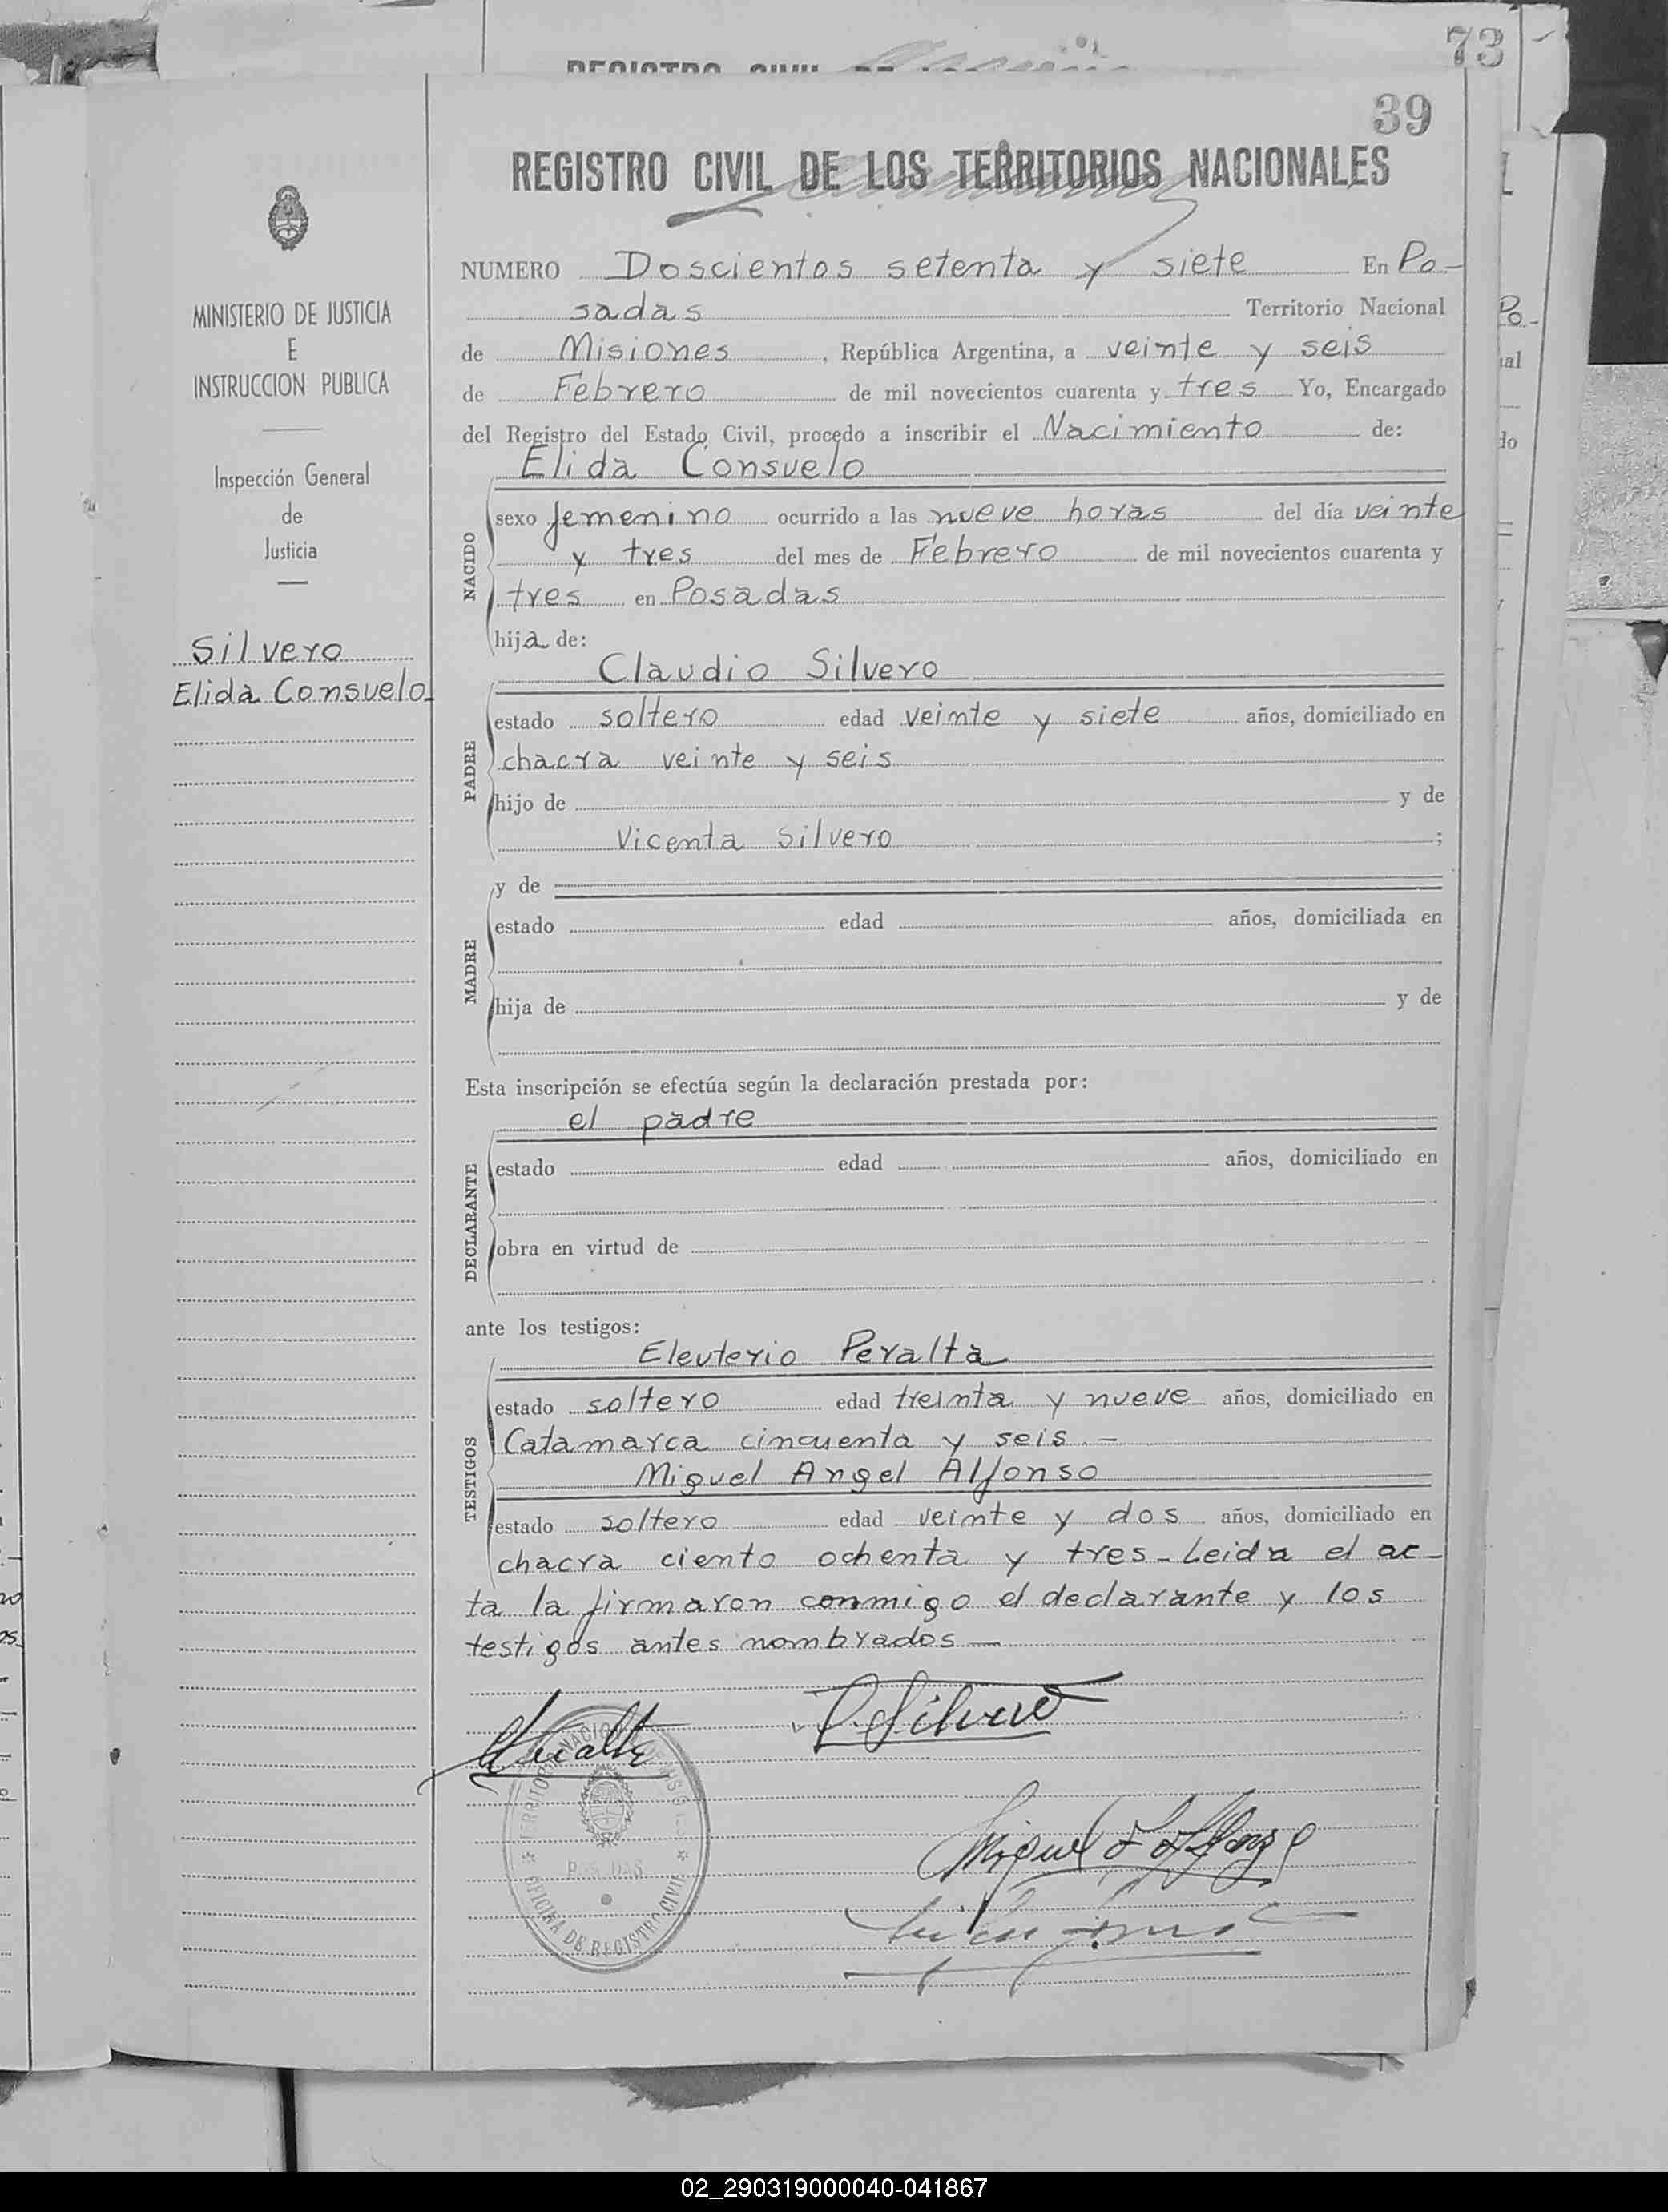 73
39
REGISTRO CIVIL DE LOS TERRITORIOS NACIONALES
MINISTERIO DE JUSTICIA
E
INSTRUCCION PUBLICA
Inspección General
de
Justicia
Silvero
Elida Consuelo
NUMERO Doscientos setenta y siete En Po-
sadas Territorio Nacional
de Misiones, República Argentina, a veinte y seis
de Febrero de mil novecientos cuarenta y tres Yo, Encargado
del Registro del Estado Civil, procedo a inscribir el Nacimiento de:
Elida Consuelo
NACIDO
sexo femenino ocurrido a las nueve horas del día veinte
y tres del mes de Febrero de mil novecientos cuarenta y
tres en Posadas
hija de:
Claudio Silvero
PADRE
estado soltero edad veinte y siete años, domiciliado en
chacra veinte y seis
hijo de y de
Vicenta Silvero ;
MADRE
y de
estado edad años, domiciliada en
hija de y de
Esta inscripción se efectúa según la declaración prestada por:
el padre
DECLARANTE
estado edad años, domiciliado en
obra en virtud de
ante los testigos:
Eleuterio Peralta
TESTIGOS
estado soltero edad treinta y nueve años, domiciliado en
Catamarca cincuenta y seis.-
Miguel Angel Alfonso
estado soltero edad veinte y dos años, domiciliado en
chacra ciento ochenta y tres - Leida el ac-
ta la firmaron conmigo el declarante y los
testigos antes nombrados -
C. Silvero
OFICINA DE REGISTRO CIVIL
02_290319000040-041867